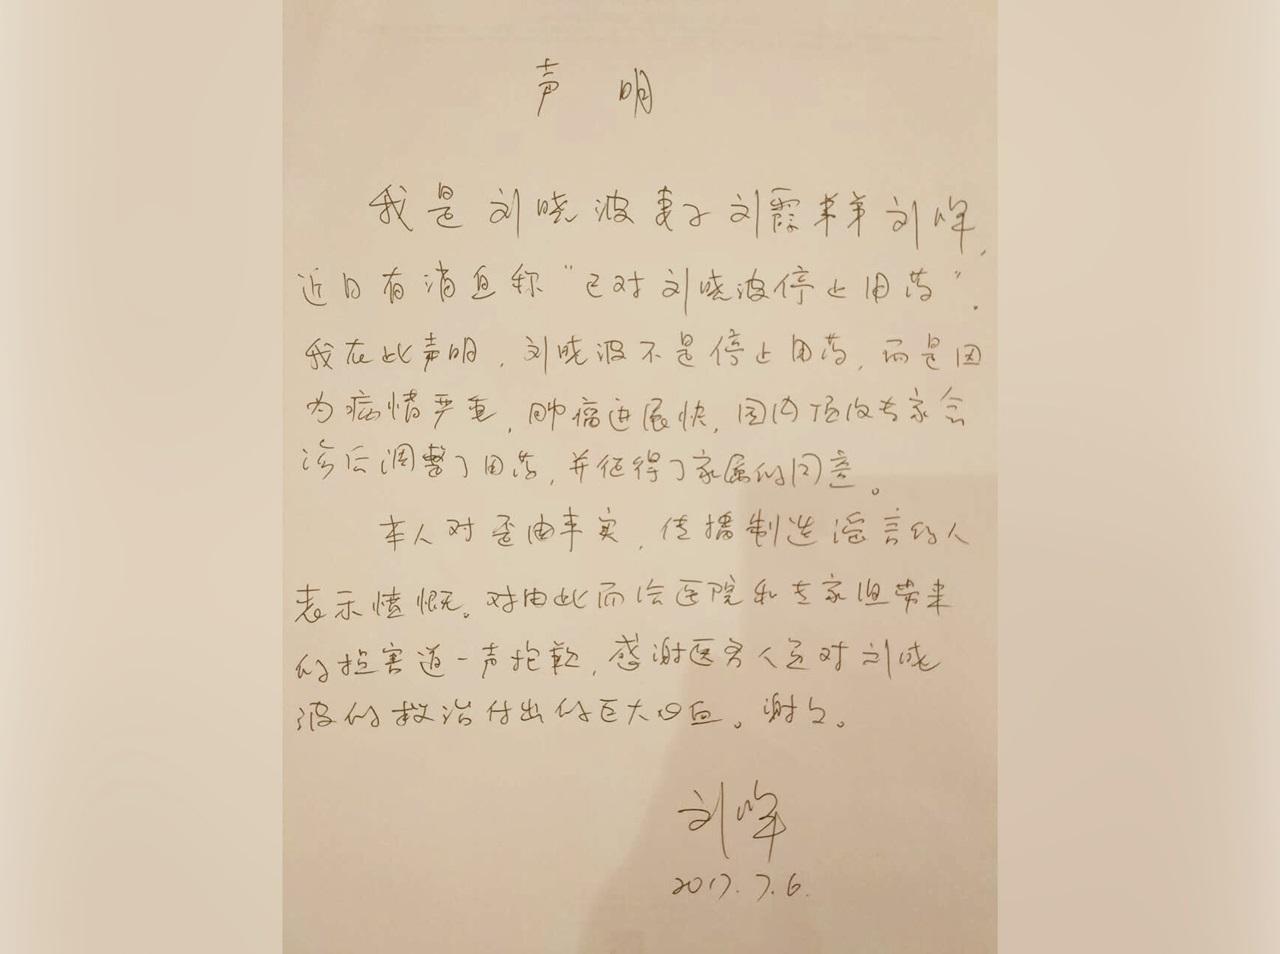 声 明
我是刘晓波妻子刘霞弟弟刘晖,
近日有消息称“已对刘晓波停止用药”.
我在此声明,刘晓波不是停止用药,而是因
为病情严重,肿瘤进展快,国内顶级专家会
诊后调整了用药,并征得了家属的同意。
本人对歪曲事实,传播制造谣言的人
表示愤慨。对由此而给医院和专家组带来
的损害道一声抱歉,感谢医务人员对刘晓
波的救治付出的巨大心血。谢谢。
刘晖
2017.7.6.